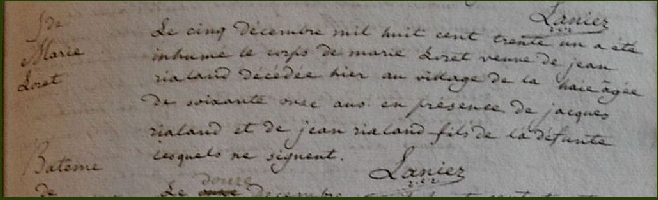 Laniez
S de Le cinq décembre mil huit cent trente un a été
Marie inhumé le corps de marie Loret veuve de jean
Loret rialand décédée hier au village de la haie âgée
de soixante onze ans en présence de jacques
rialand et de jean rialand fils de la défunte
lesquels ne signent.
Bateme Laniez
de Le douze décembre